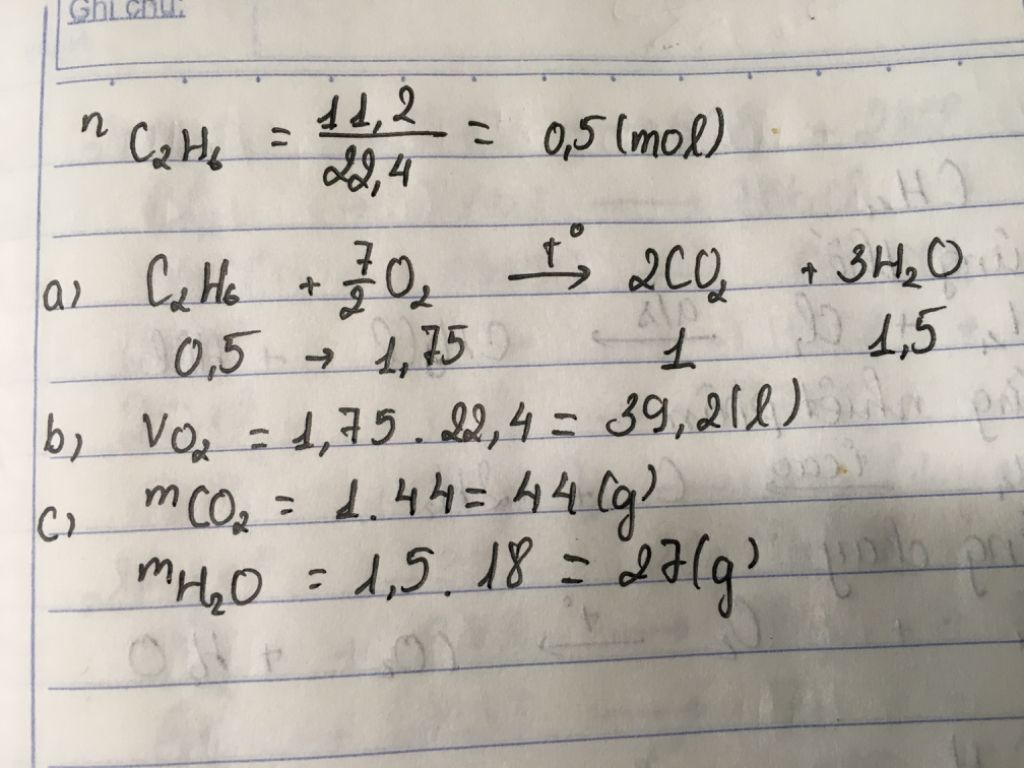 Ghi chú:
n C₂H₆ = 11,2/22,4 = 0,5 (mol)
a) C₂H₆ + 7/2 O₂ —t°→ 2CO₂ + 3H₂O
0,5 → 1,75 1 1,5
b) VO₂ = 1,75 . 22,4 = 39,2 (l)
c) mCO₂ = 1. 44 = 44 (g)
mH₂O = 1,5. 18 = 27 (g)